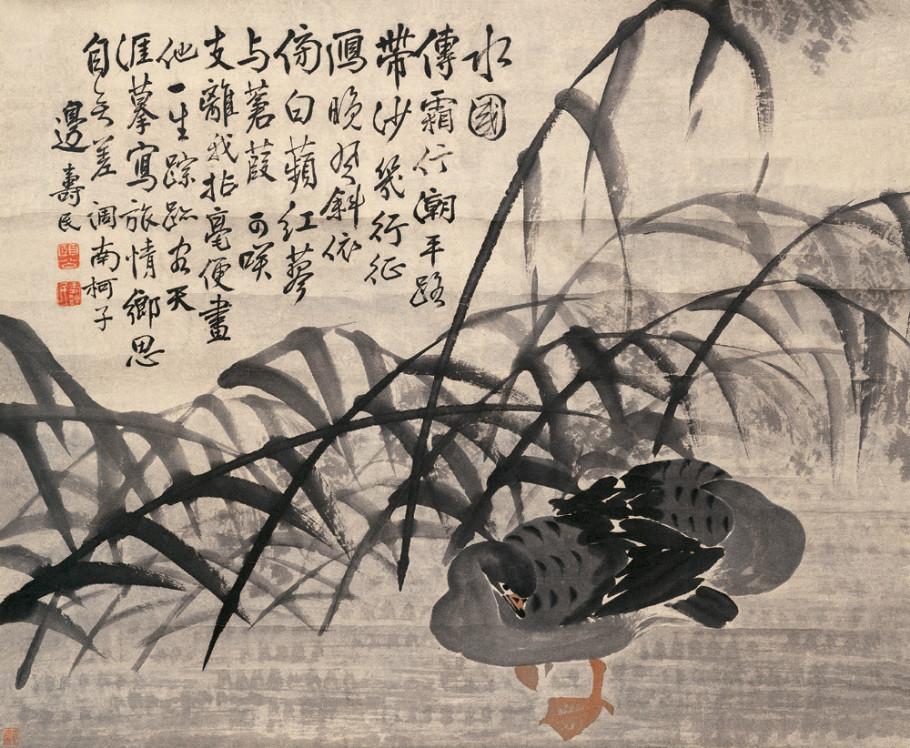 水國
傳霜信潮平路
帶沙幾行征
鴈晚風斜依
傍白蘋紅蓼
与蒼葭可咲
支離我拈毫便畫
他一生踪跡客天
涯摹寫旅情鄉思
自无差 調南柯子
邊壽民